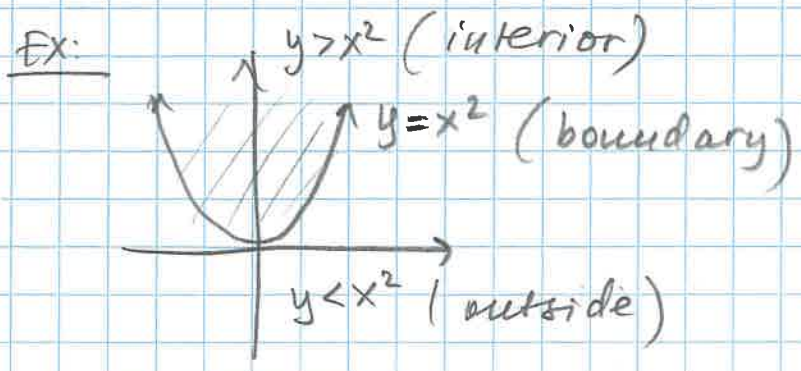 Ex: y>x² (interior)
y=x² (boundary)
y<x² (outside)